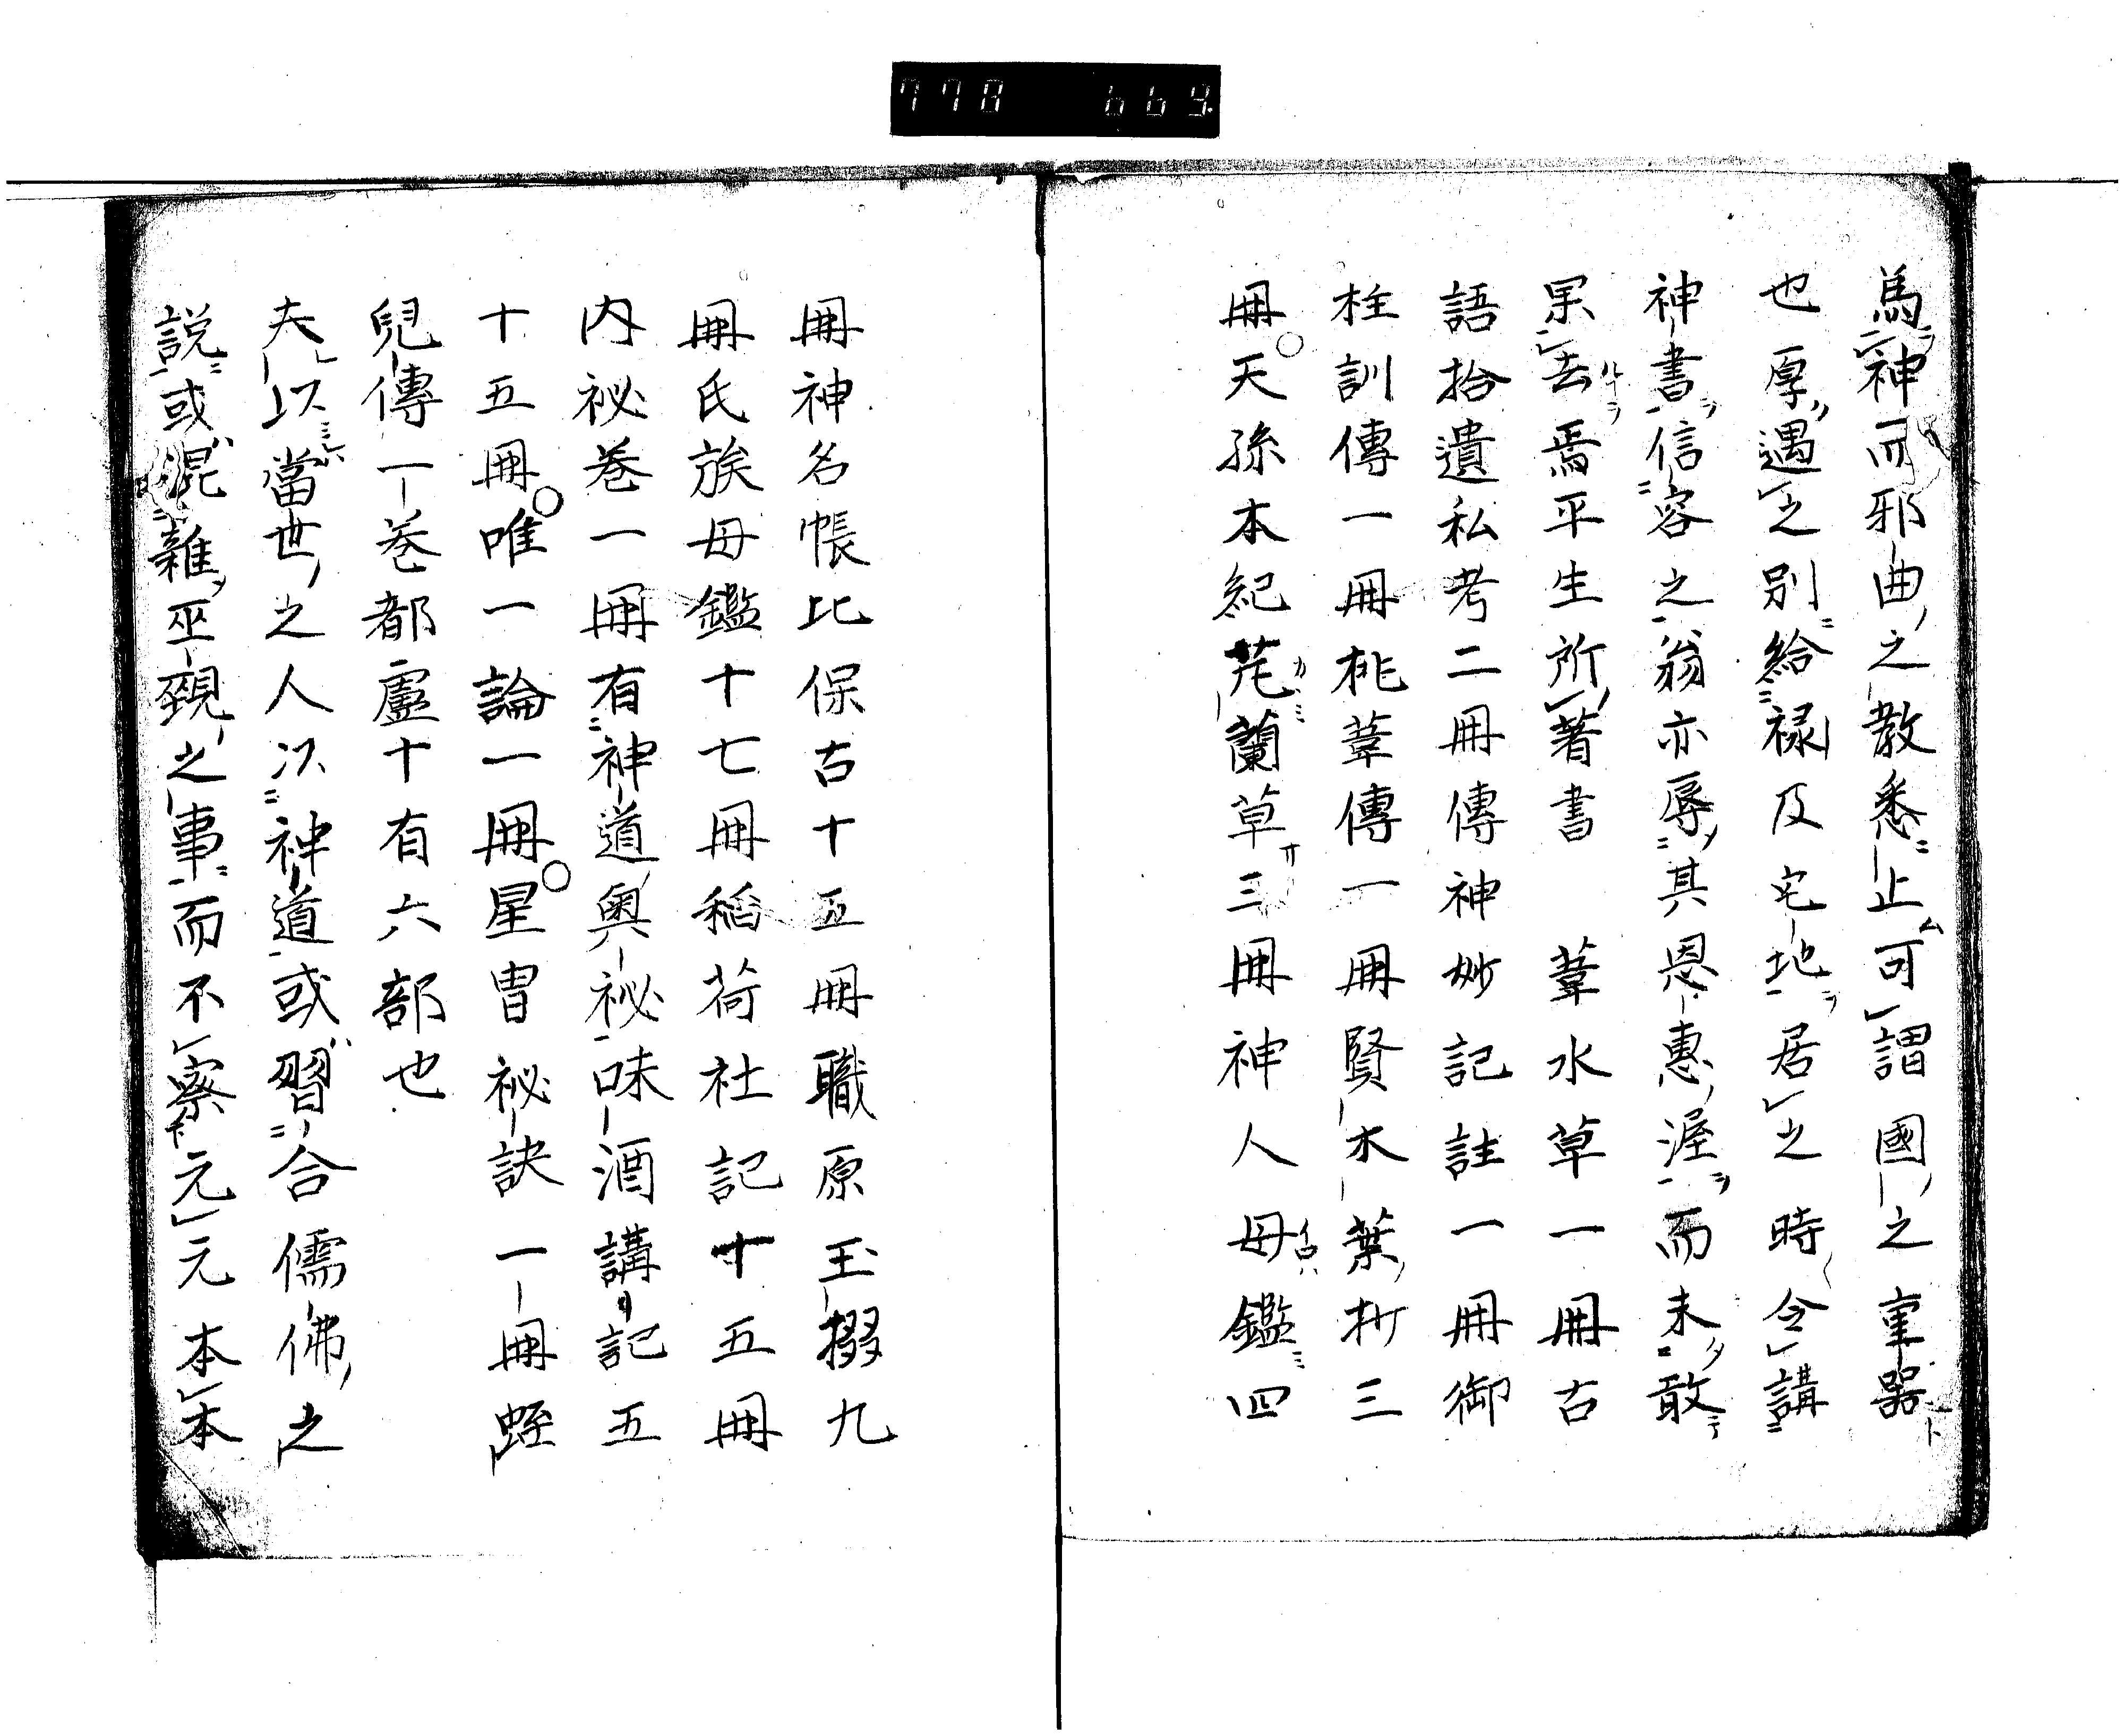 778 669
爲神而邪曲之教悉止可謂國之重器
也厚遇之別給禄及宅地居之時令講
神書信容之翁亦辱其恩惠渥而未敢
罙去焉平生所著書 葦水草一冊古
語拾遺私考二冊傳神妙記註一冊御
柱訓傳一冊桃葦傳一冊賢木葉折三
冊天孫本紀芄蘭草三冊神人母鑑四
冊神名帳比保古十五冊職原玉掇九
冊氏族母鑑十七冊稻荷社記十五冊
内祕卷一冊有神道奥祕味酒講記五
十五冊唯一論一冊星曺祕訣一冊蛭
兒傳一卷都盧十有六部也
夫以當世之人以神道或習合儒佛之
説或混雜巫覡之事而不察元元本本